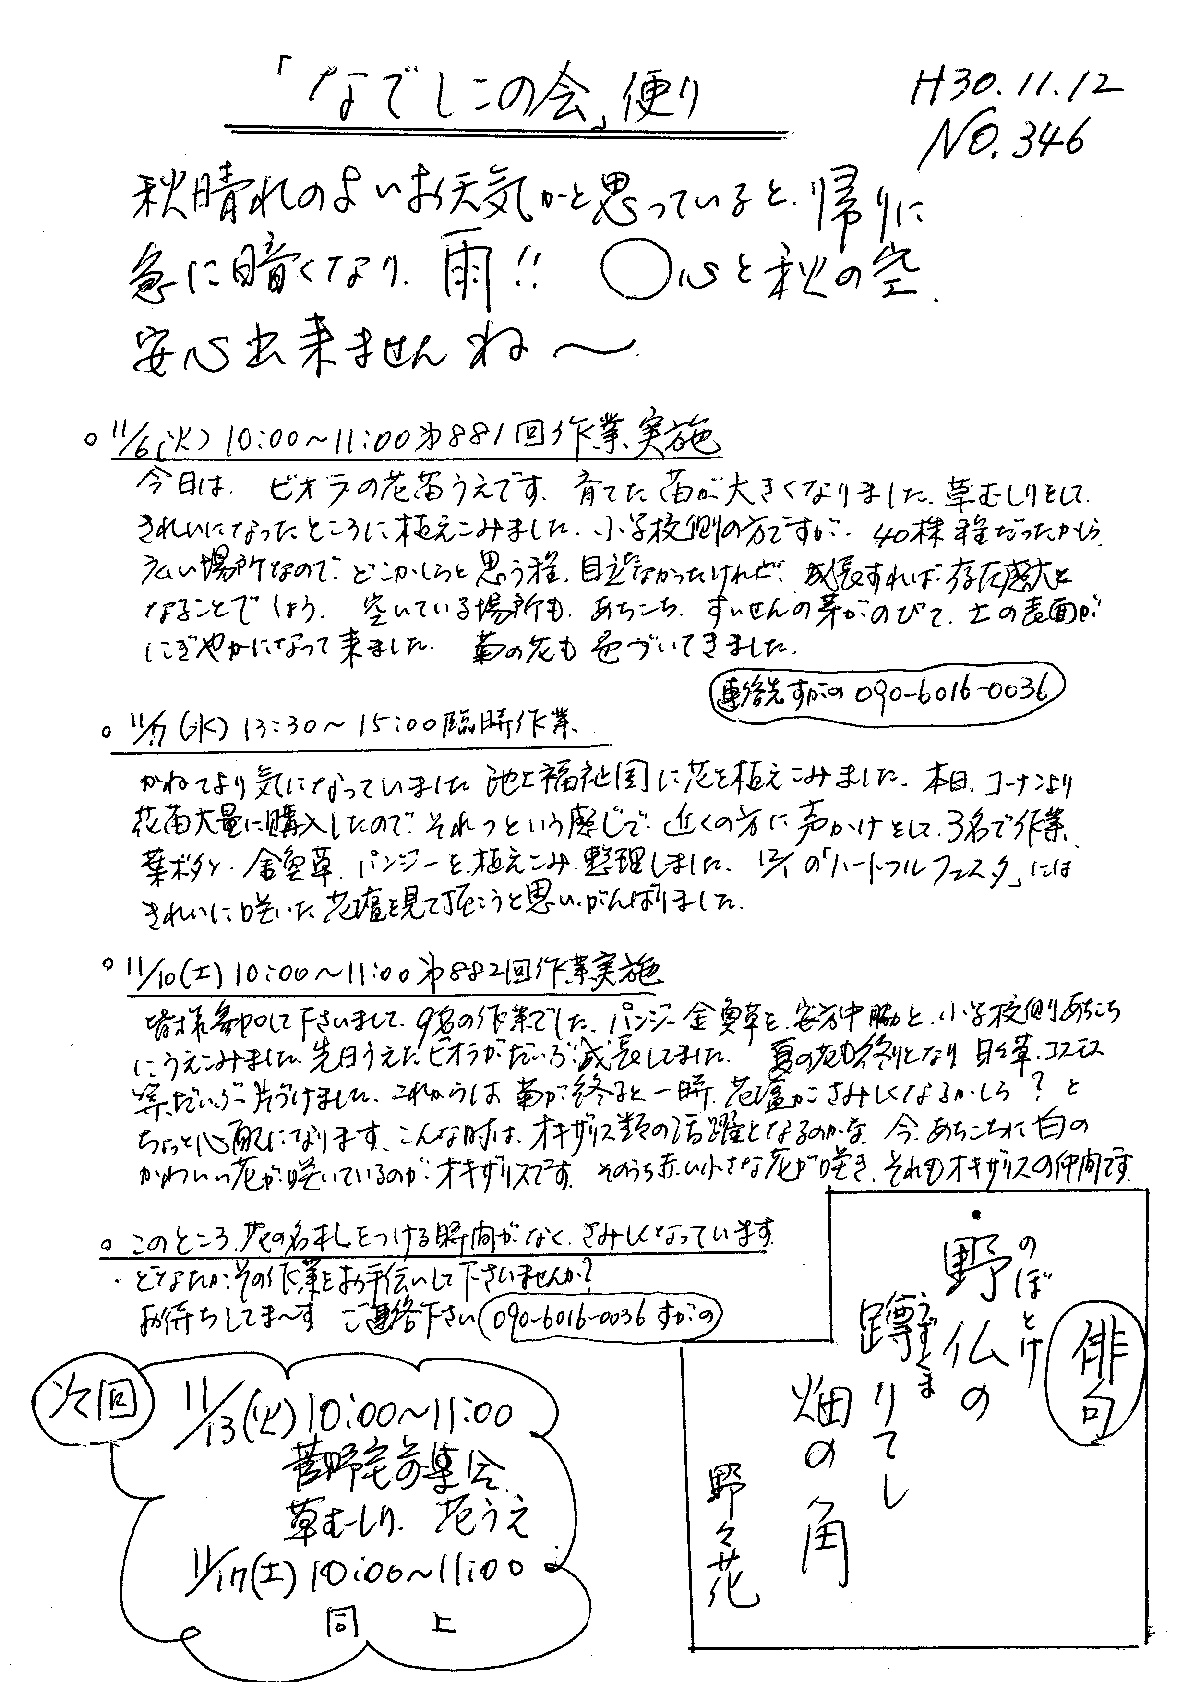 「なでしこの会」便り
H30.11.12
NO.346
秋晴れのよいお天気かと思っていると、帰りに
急に暗くなり、雨!! ○心と秋の空、
安心出来ませんね〜
○ 11/6(火) 10:00〜11:00 第881回作業実施
今日は、ビオラの花苗うえです、育てた苗が大きくなりました、草むしりをして、
きれいになったところに植えこみました、小学校側の方ですが、40株程だったから
広い場所なので、どこかしらと思う程、目立なかったけれど、成長すれば、存在感大と
なることでしょう、空いている場所も、あちこち、すいせんの芽がのびて、土の表面が
にぎやかになって来ました、菊の花も色づいてきました、
連絡先すがの 090-6016-0036
○ 11/7(水) 13:30〜15:00 臨時作業
かねてより気になっていました池上福祉園に花を植えこみました、本日、コーナンより
花苗大量に購入したので、それっという感じで、近くの方に声かけをして、3名で作業、
葉ボタン・金魚草、パンジーを植えこみ、整理しました、12/1の「ハートフルフェスタ」には
きれいに咲いた花壇を見て頂こうと思い、がんばりました、
○ 11/10(土) 10:00〜11:00 第882回作業実施
皆様参加して下さいまして、9名の作業でした、パンジー金魚草を、安方中脇と、小学校側あちこち
にうえこみました、先日うえたビオラがだいぶ成長してました、夏の花も終りとなり 日々草、コスモス
等だいぶ片づけました、これからは菊が終ると一時、花壇がさみしくなるかしら?と
ちょっと心配になります、こんな時は、オキザリス類の活躍となるのかな、今、あちこちに白の
かわいい花が咲いているのが、オキザリスです、そのうち赤い小さな花が咲き、それもオキザリスの仲間です
○ このところ、花の名札をつける時間がなく、さみしくなっています
・どなたか、その作業をお手伝いして下さいませんか?
お待ちしてま〜す ご連絡下さい 090-6016-0036 すがの
次回
11/13(火) 10:00〜11:00
菅野宅前集合
草むしり、花うえ
11/17(土) 10:00〜11:00
同 上
俳句
のぼとけ
・野仏の
うずくま
蹲りてし
畑の角
野々花